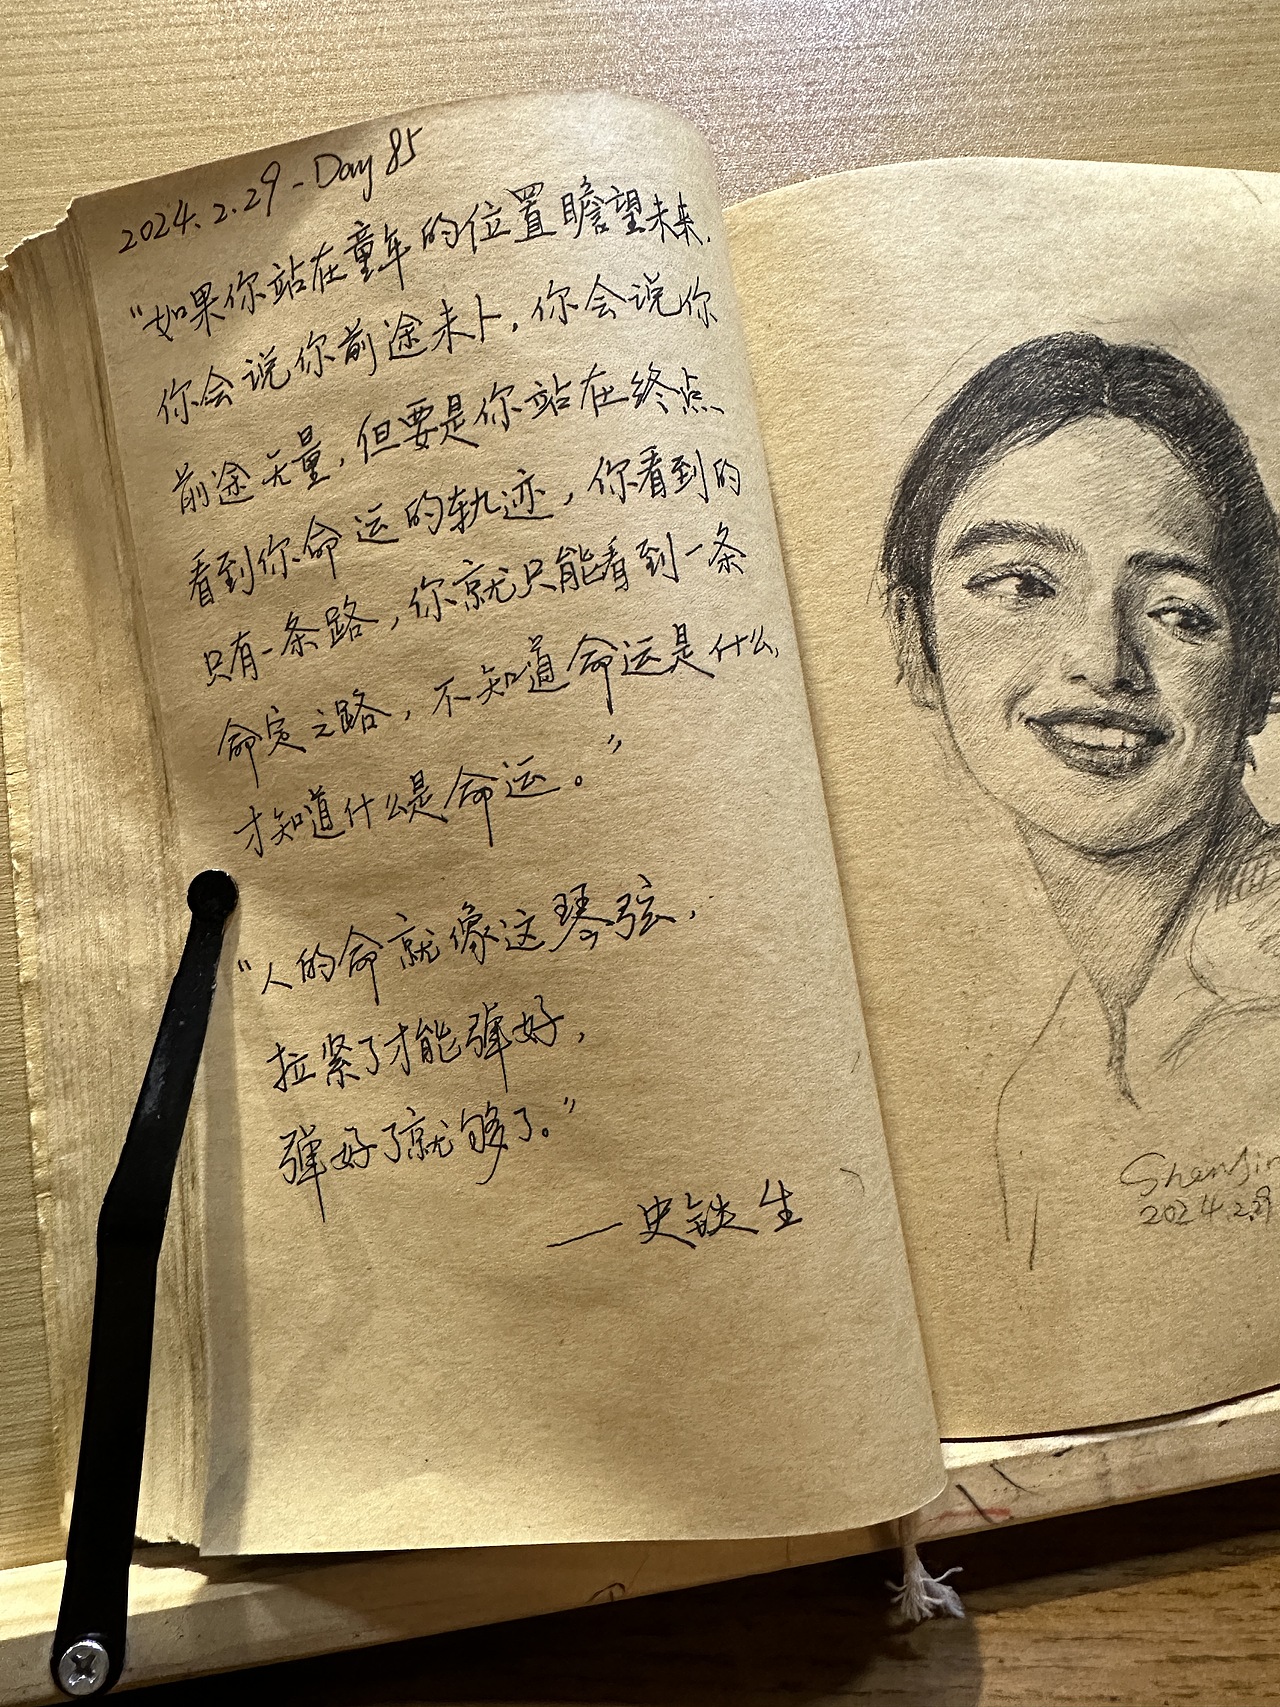 2024.2.29 - Day 85
“如果你站在童年的位置瞻望未来,
你会说你前途未卜，你会说你
前途无量，但要是你站在终点
看到你命运的轨迹，你看到的
只有一条路，你就只能看到一条
命定之路，不知道命运是什么,
才知道什么是命运。”
“人的命就像这琴弦，
拉紧了才能弹好，
弹好了就够了。”
—史铁生
2024.2.29